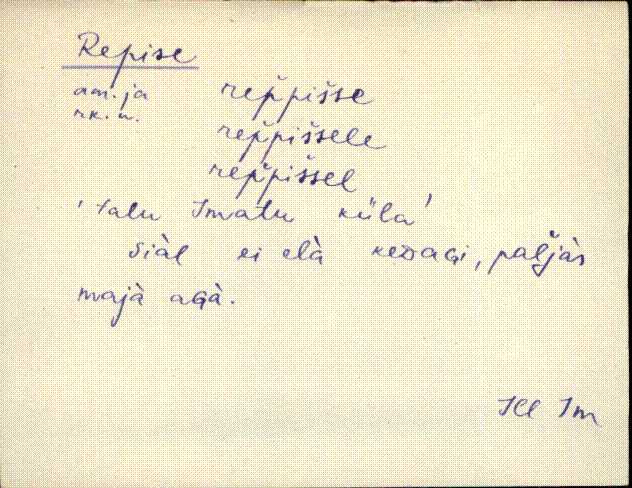 Repise
am. ja rep̆pišse
rk. n. rep̆pišsele
rep̆pišsel
'talu Imatu küla'
siàl ei elà keDaGi, pal̆jàs
majà aGà.
Ill Im